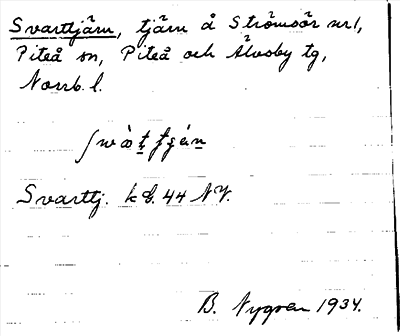 Svarttjärn, tjärn å Strömsör nr 1,
Piteå sn, Piteå och Älvsby tg,
Norrb. l.
Svarttj. k bl. 44 NV.
B. Nygren 1934.